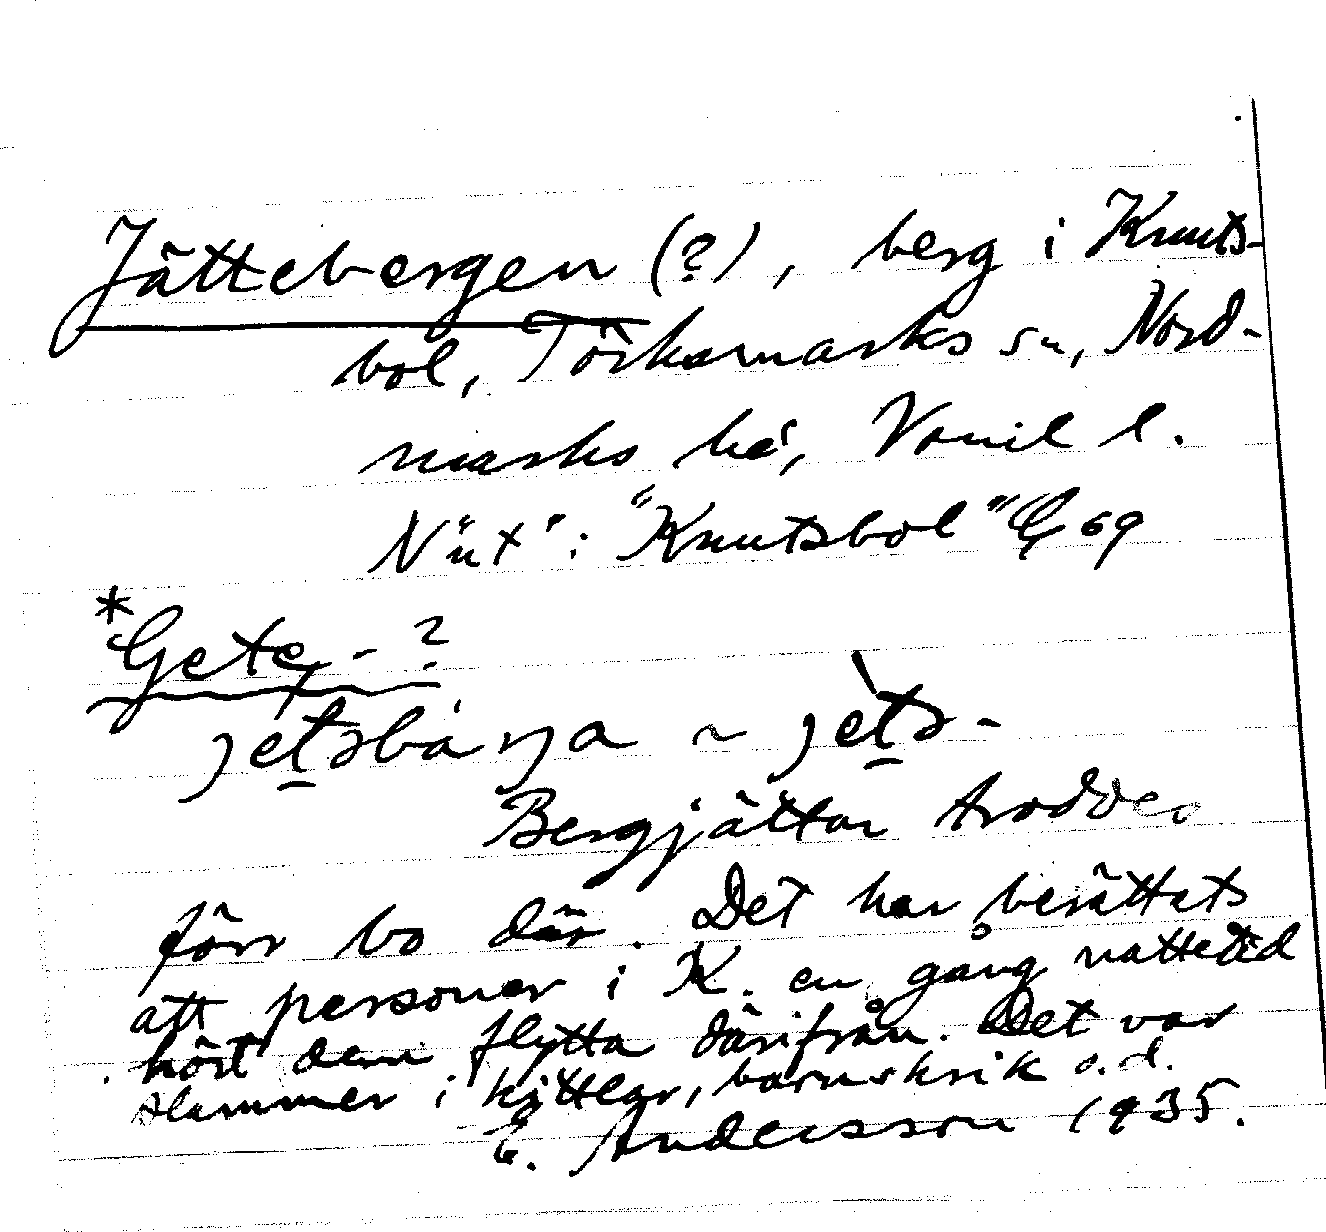 Jättebergen (?), berg i Knuts-
bol, Törksmarks sn, Nord-
marks hd, Vänil l.
N "ut": "Knutsbol"
*Gete, - ?
Bergjättar troddes
förr bo där. Det har berättats
att personer i K. en gång nattetid
hört dem flytta därifrån. Det var
slammer i kittlar, barnskrik o.d.
E. Andersson 1935.